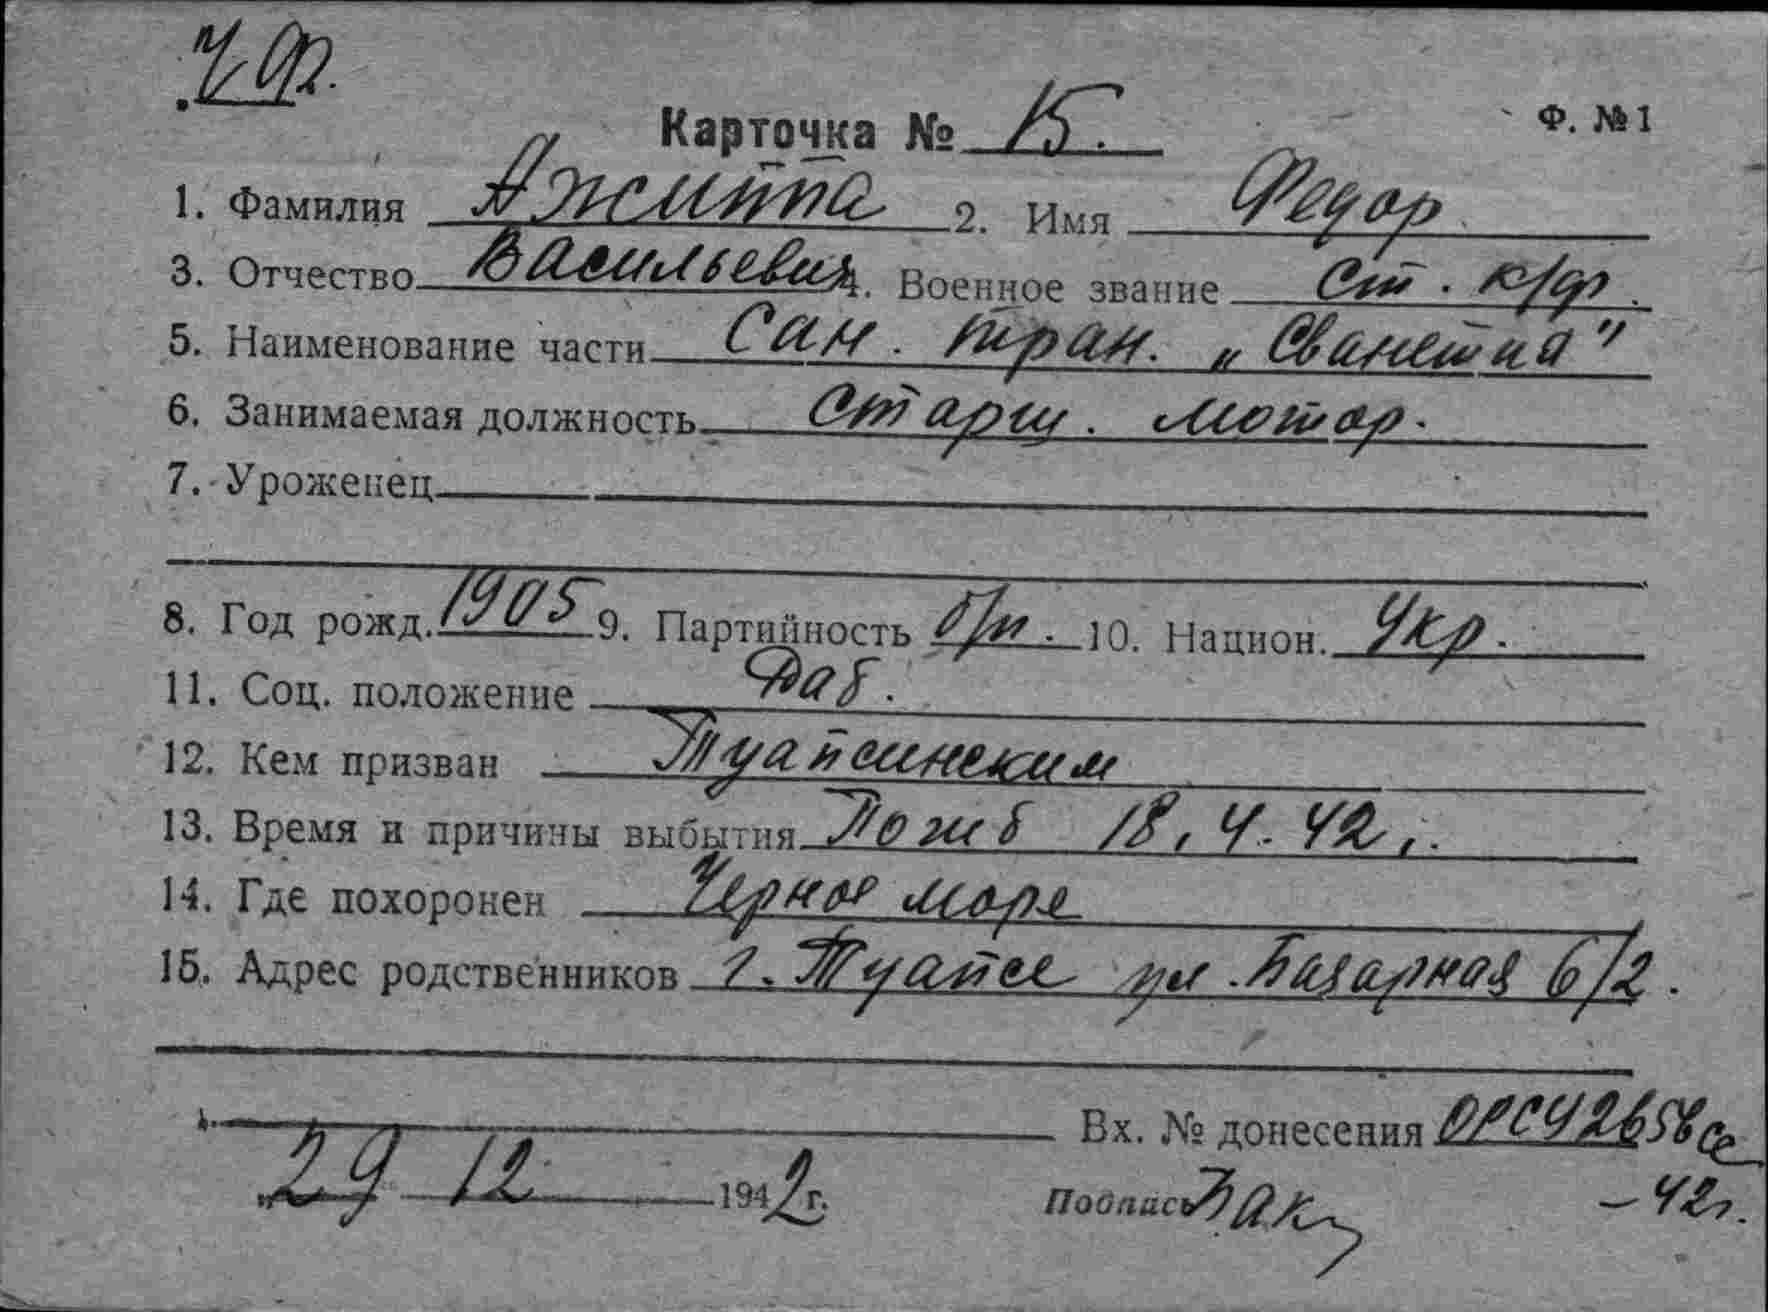 ЧФ.
Карточка № 15. Ф. №1
1. Фамилия Ажиппа 2. Имя Федор
3. Отчество Васильевич 4. Военное звание Ст. к/ф.
5. Наименование части Сан. тран. „Сванетия"
6. Занимаемая должность Старш. мотор.
7. Уроженец
8. Год рожд. 1905 9. Партийность б/п. 10. Национ. Укр.
11. Соц. положение Раб.
12. Кем призван Туапсинским
13. Время и причины выбытия Погиб 18.4.42.
14. Где похоронен Черное море
15. Адрес родственников г. Туапсе ул. Базарная 6/2.
Вх. № донесения ОРСУ 2656 се
29 12 1942 г. Подпись - 42 г.